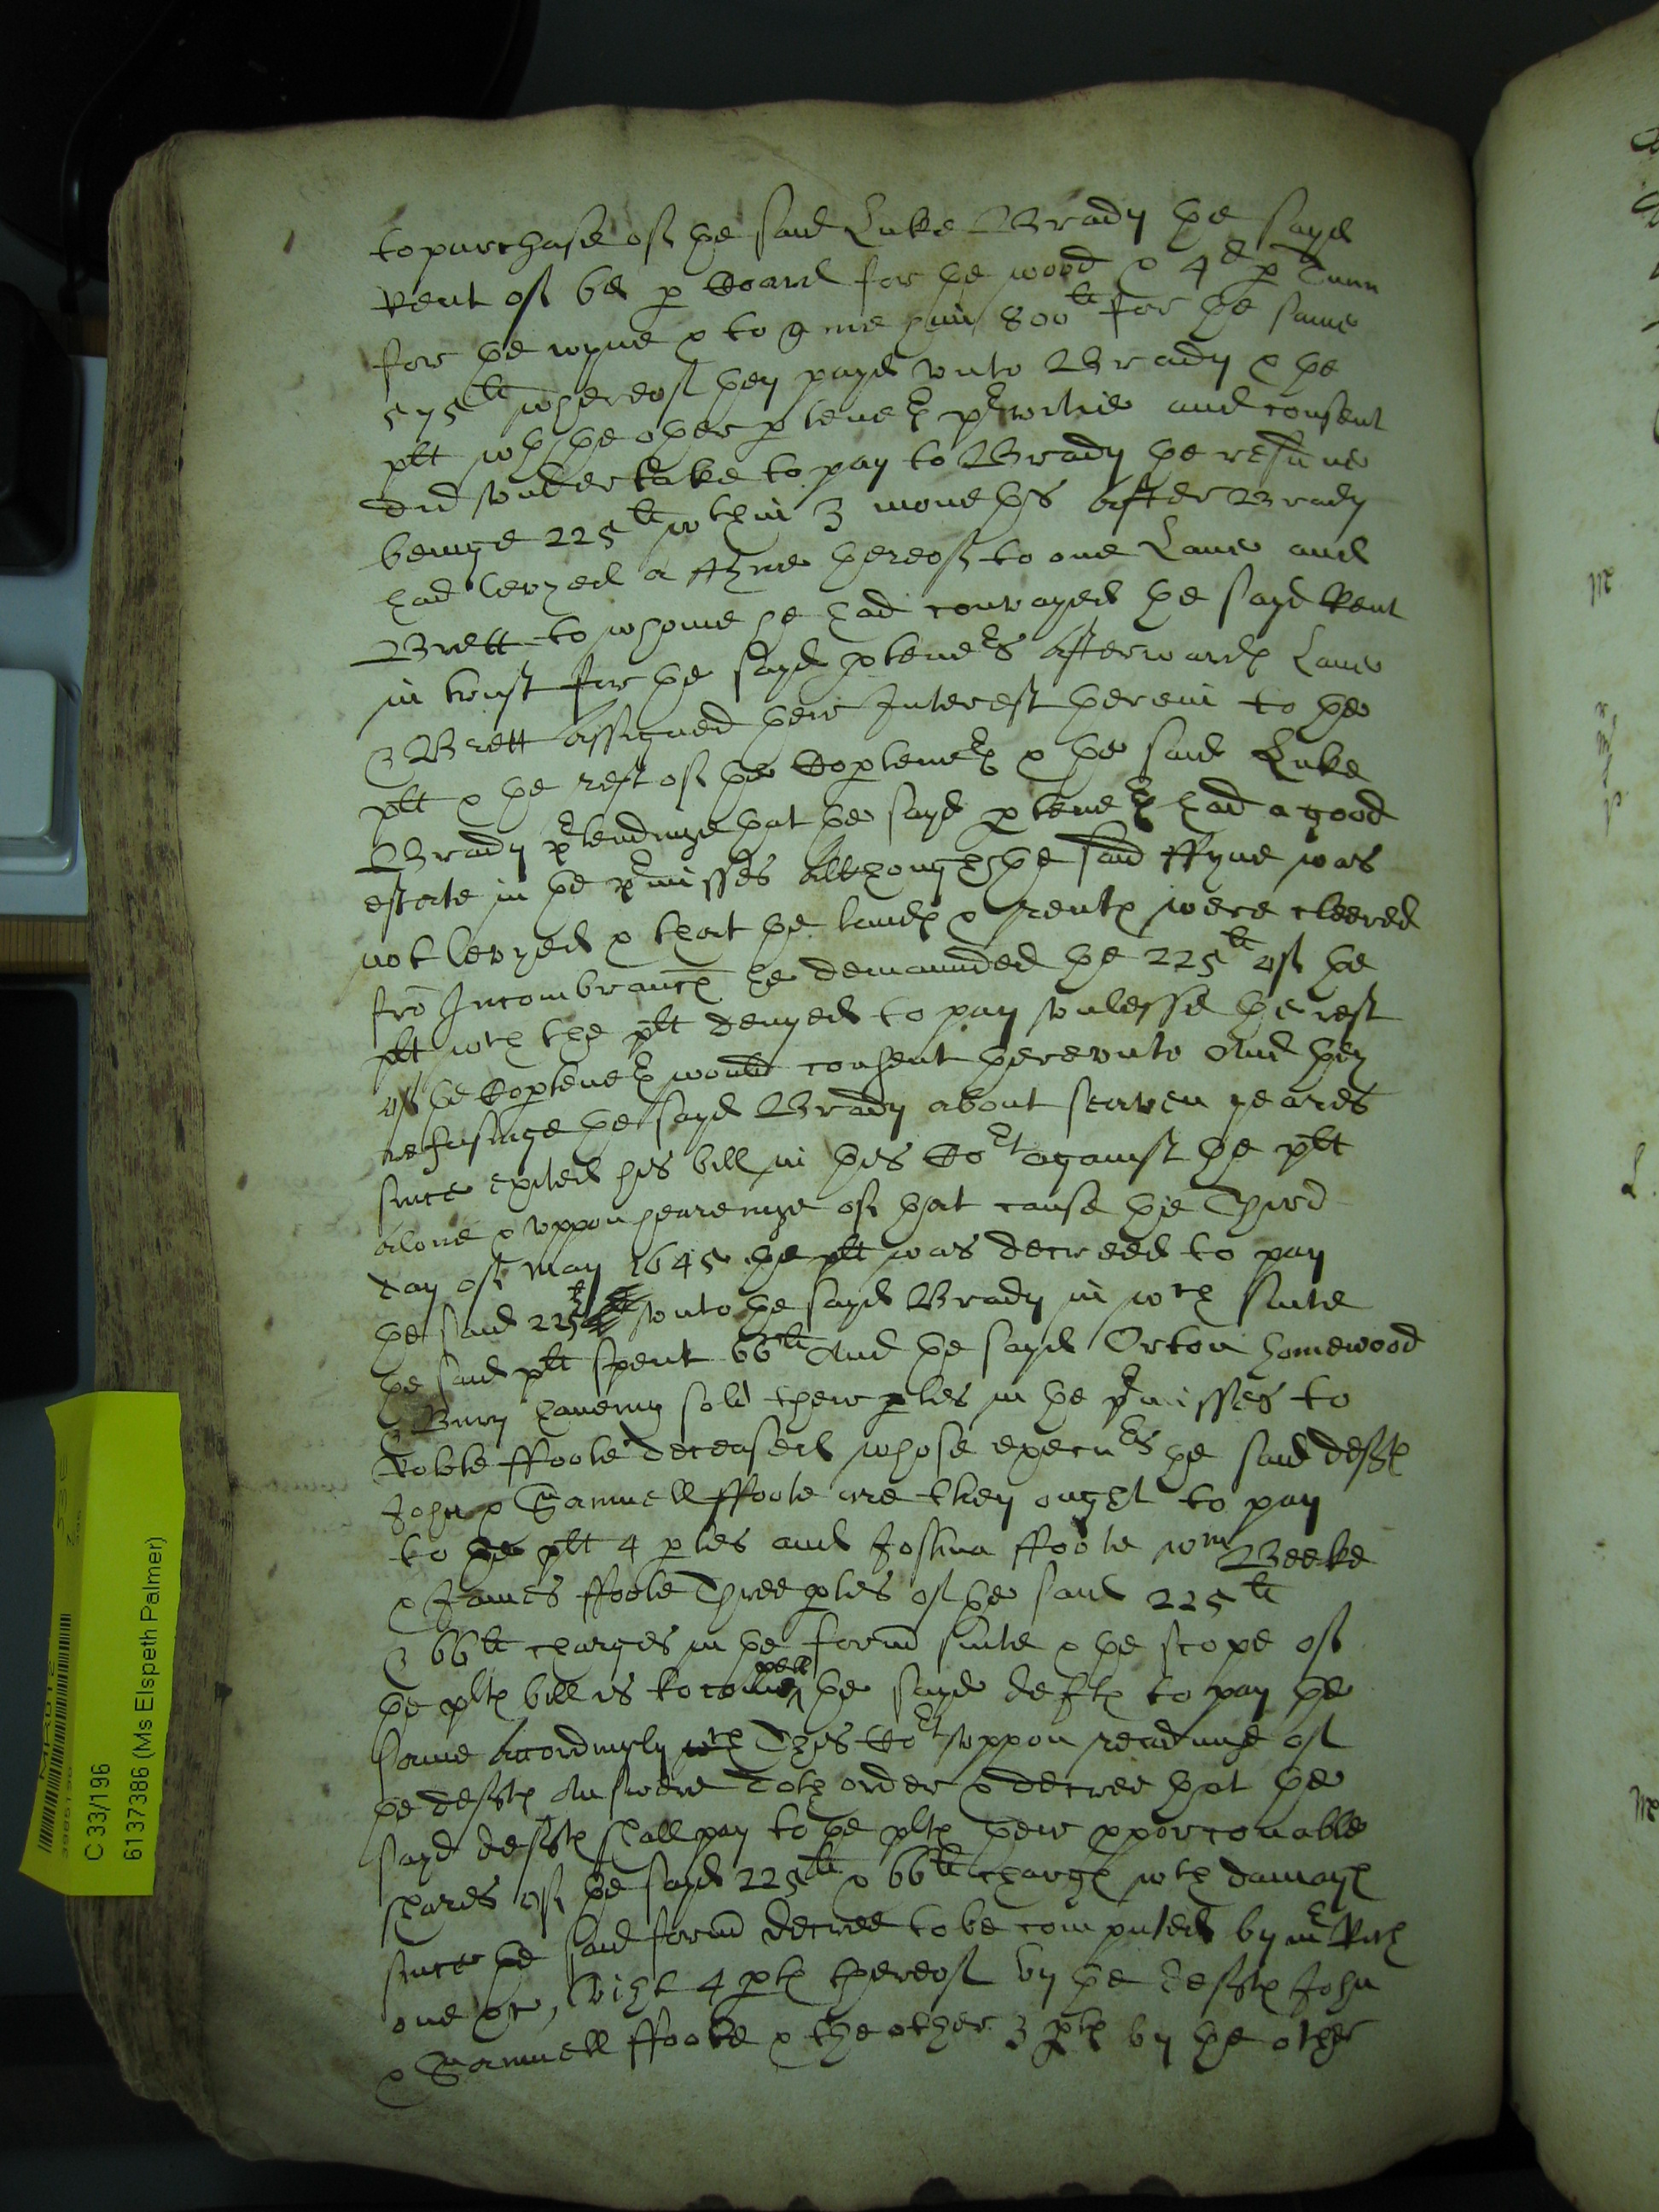 to purchase of the said Luke Brady the sayd
Rent of 6d p Coard for the wood & 4d p Tunn
for the myne & to give him 800li for the same
575li whereof they payd vnto Brady & the
plt wth the other p teners privitie and consent
did vndertake to pay to Brady the residue
beinge 225li wthin 3 moneths after Brady
had levyed a ffyne thereof to one Lane and
Brett to whome he had convayed the sayd Rent
in trust for the sayd pteners Afterwards Lane
& Brett assigned their Interest therein to the
plt & the rest of the Coptenrs & the said Luke
Brady ptendinge that the sayd ptenrs had a good
estate in the pmisses Although the said ffyne was
not levyed & that the lands & rents were cleered
fro Incombrances he demaunded the 225li of the
plt wch the plt denyed to pay vnlesse the rest
of the Coptenrs would consent therevnto And they
refusinge the sayd Brady about seaven yeares
since exited his bill in this Cort against the plt
alone & vppon heareinge of that cause the Third
day of May 1645 the plt was decreed to pay
the said 225li vnto the sayd Brady in wch suite
the said plt spent 66li And the sayd Orton Homewood
& Bury haveing sold their ptes in the pmisses to
Robte ffoote deceased whose execurs the said defts
John & Samuell ffoote are they ought to pay
to the plt 4 ptes and Joshua ffoote Wm Beeke
& James ffoote Three ptes of the said 225li
& 66li charges in the formr suite & the scope of
the plts bill is to compell the sayd defts to pay the
same Accordingly This Cort vppon readinge of
the defts Answere Doth order & decree that the
sayd defts shall pay to the plts their pporconable
shares of the sayd 225li & 66li charges wth damages
since the said formr decree to be computed by Mr Rich
one &c, vizt 4 pts thereof by the defts John
& Samuell ffoote & the other 3 pts by the other
C 33/196
6137386 (Ms Elspeth Palmer)